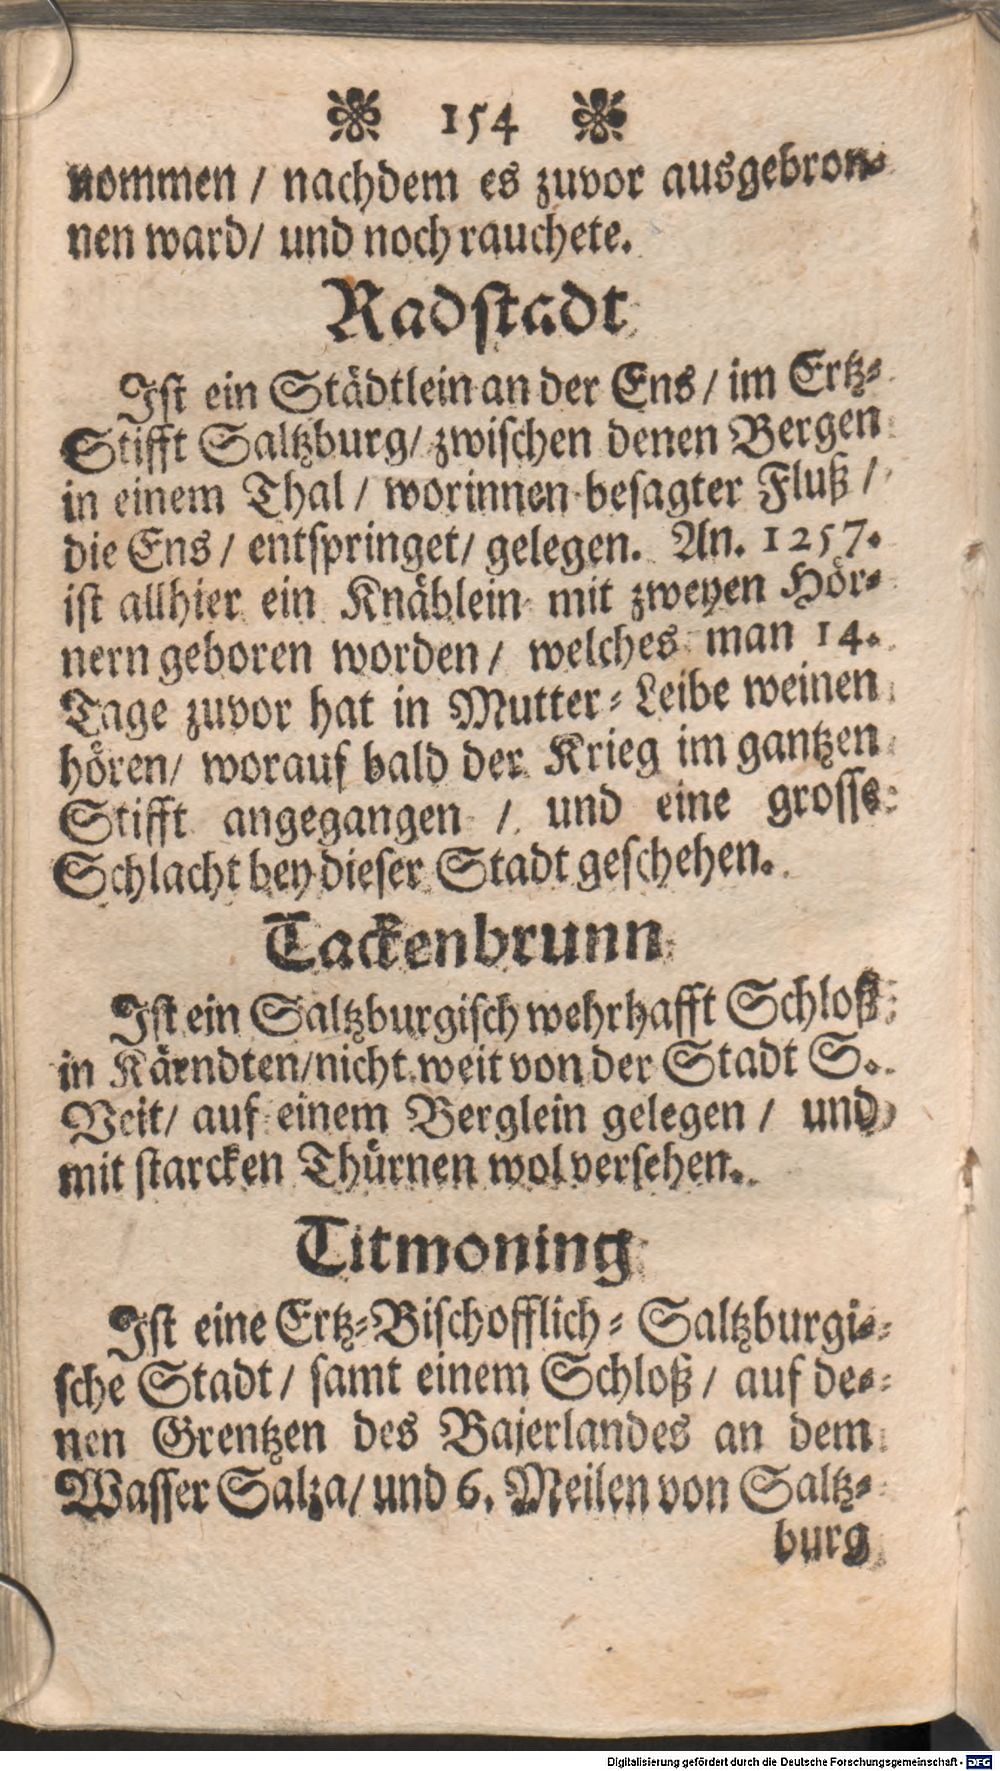 154
nommen / nachdem es zuvor ausgebron-
nen ward / und noch rauchete.
Radstadt
Ist ein Städtlein an der Ens / im Ertz-
Stifft Saltzburg / zwischen denen Bergen
in einem Thal / worinnen besagter Fluß /
die Ens / entspringet / gelegen. An. 1257.
ist allhier ein Knäblein mit zweyen Hör-
nern geboren worden / welches man 14.
Tage zuvor hat in Mutter-Leibe weinen
hören / worauf bald der Krieg im gantzen
Stifft angegangen / und eine grosse
Schlacht bey dieser Stadt geschehen.
Tackenbrunn
Ist ein Saltzburgisch wehrhafft Schloß
in Kärndten / nicht weit von der Stadt S.
Veit / auf einem Berglein gelegen / und
mit starcken Thürnen wol versehen.
Titmoning
Ist eine Ertz-Bischofflich-Saltzburgi-
sche Stadt / samt einem Schloß / auf de-
nen Grentzen des Bajerlandes an dem
Wasser Salza / und 6. Meilen von Saltz-
burg
Digitalisierung gefördert durch die Deutsche Forschungsgemeinschaft - DFG